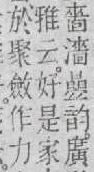 嗇濇曡韵。廣
雅云。好是家
於聚斂作力